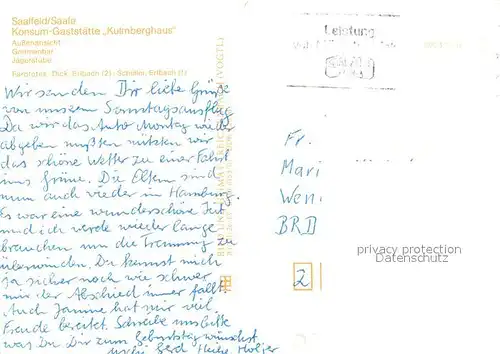 Saalfeld/Saale
Konsum-Gaststätte „Kulmberghaus"
Außenansicht
Jägerstube
Farbfotos: Dick, Erlbach (2) - Schühle, Erlbach (1)
Wir senden Dir liebe Grüße
von unserem Sonntagsausflug.
Da wir das Auto Montag wieder
abgeben mußten nutzten wir
das schöne Wetter zu einer Fahrt
ins Grüne. Die Eltern sind
nun auch wieder in Hamburg.
Es war eine wunderschöne Zeit
und ich werde wieder lange
brauchen um die Trennung zu
überwinden. Du kannst mich
ja sicher noch wie schwer
mir der Abschied immer fällt.
Auch Janine hat mir viel
Freude bereitet. Schreibe uns bitte
was Du Dir zum Geburtstag wünschst
Gerd Heike Holger
Leistung
Fr.
Mari
Wen
BRD
privacy protection
Datenschutz
2